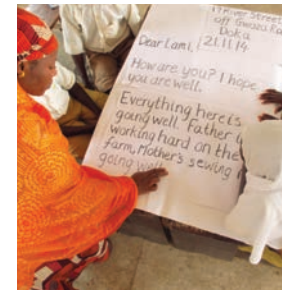 11 River Street
off Gwaza Ro
Doka
21.11.14.
Dear Kami,
How are you? I hope
you are well.
Everything here is
going well. Father
working hard on the
farm, Mother's sewing
going well